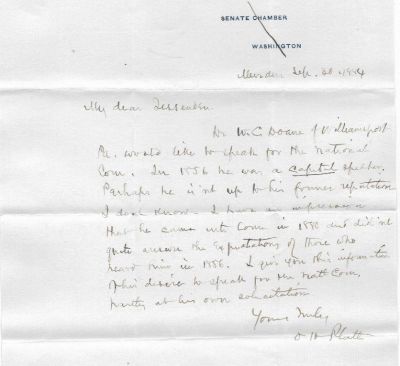 SENATE CHAMBER
WASHINGTON
Meriden Sep. 20 1884
My dear Fessenden
Dr W. C. Doane of Williamsport
Pa. would like to speak for the National
Com. In 1856 he was a capital speaker.
Perhaps he isn't up to his former reputation
I don't know. I have an impression
that he came into Conn in 1880 and didn't
quite answer the expectations of those who
heard him in 1856. I give you this information
of his desire to speak for the Natl Com,
at his own solicitation
Yours truly
O H Platt